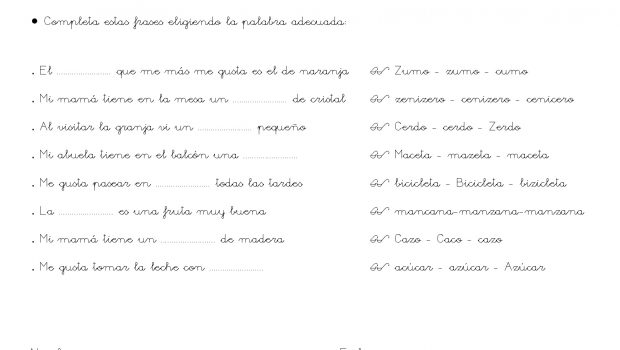 • Completa estas frases eligiendo la palabra adecuada:
. El ........................ que me más me gusta es el de naranja Zumo - zumo - cumo
. Mi mamá tiene en la mesa un ........................ de cristal zenizero - cenizero - cenicero
. Al visitar la granja vi un ........................ pequeño Cerdo - cerdo - Zerdo
. Mi abuela tiene en el balcón una ........................ Maceta - mazeta - maceta
. Me gusta pasear en ........................ todas las tardes bicicleta - Bicicleta - bizicleta
. La ........................ es una fruta muy buena mancana-manzana-manzana
. Mi mamá tiene un ........................ de madera Cazo - Caco - cazo
. Me gusta tomar la leche con ........................ acúcar - azúcar - Azúcar